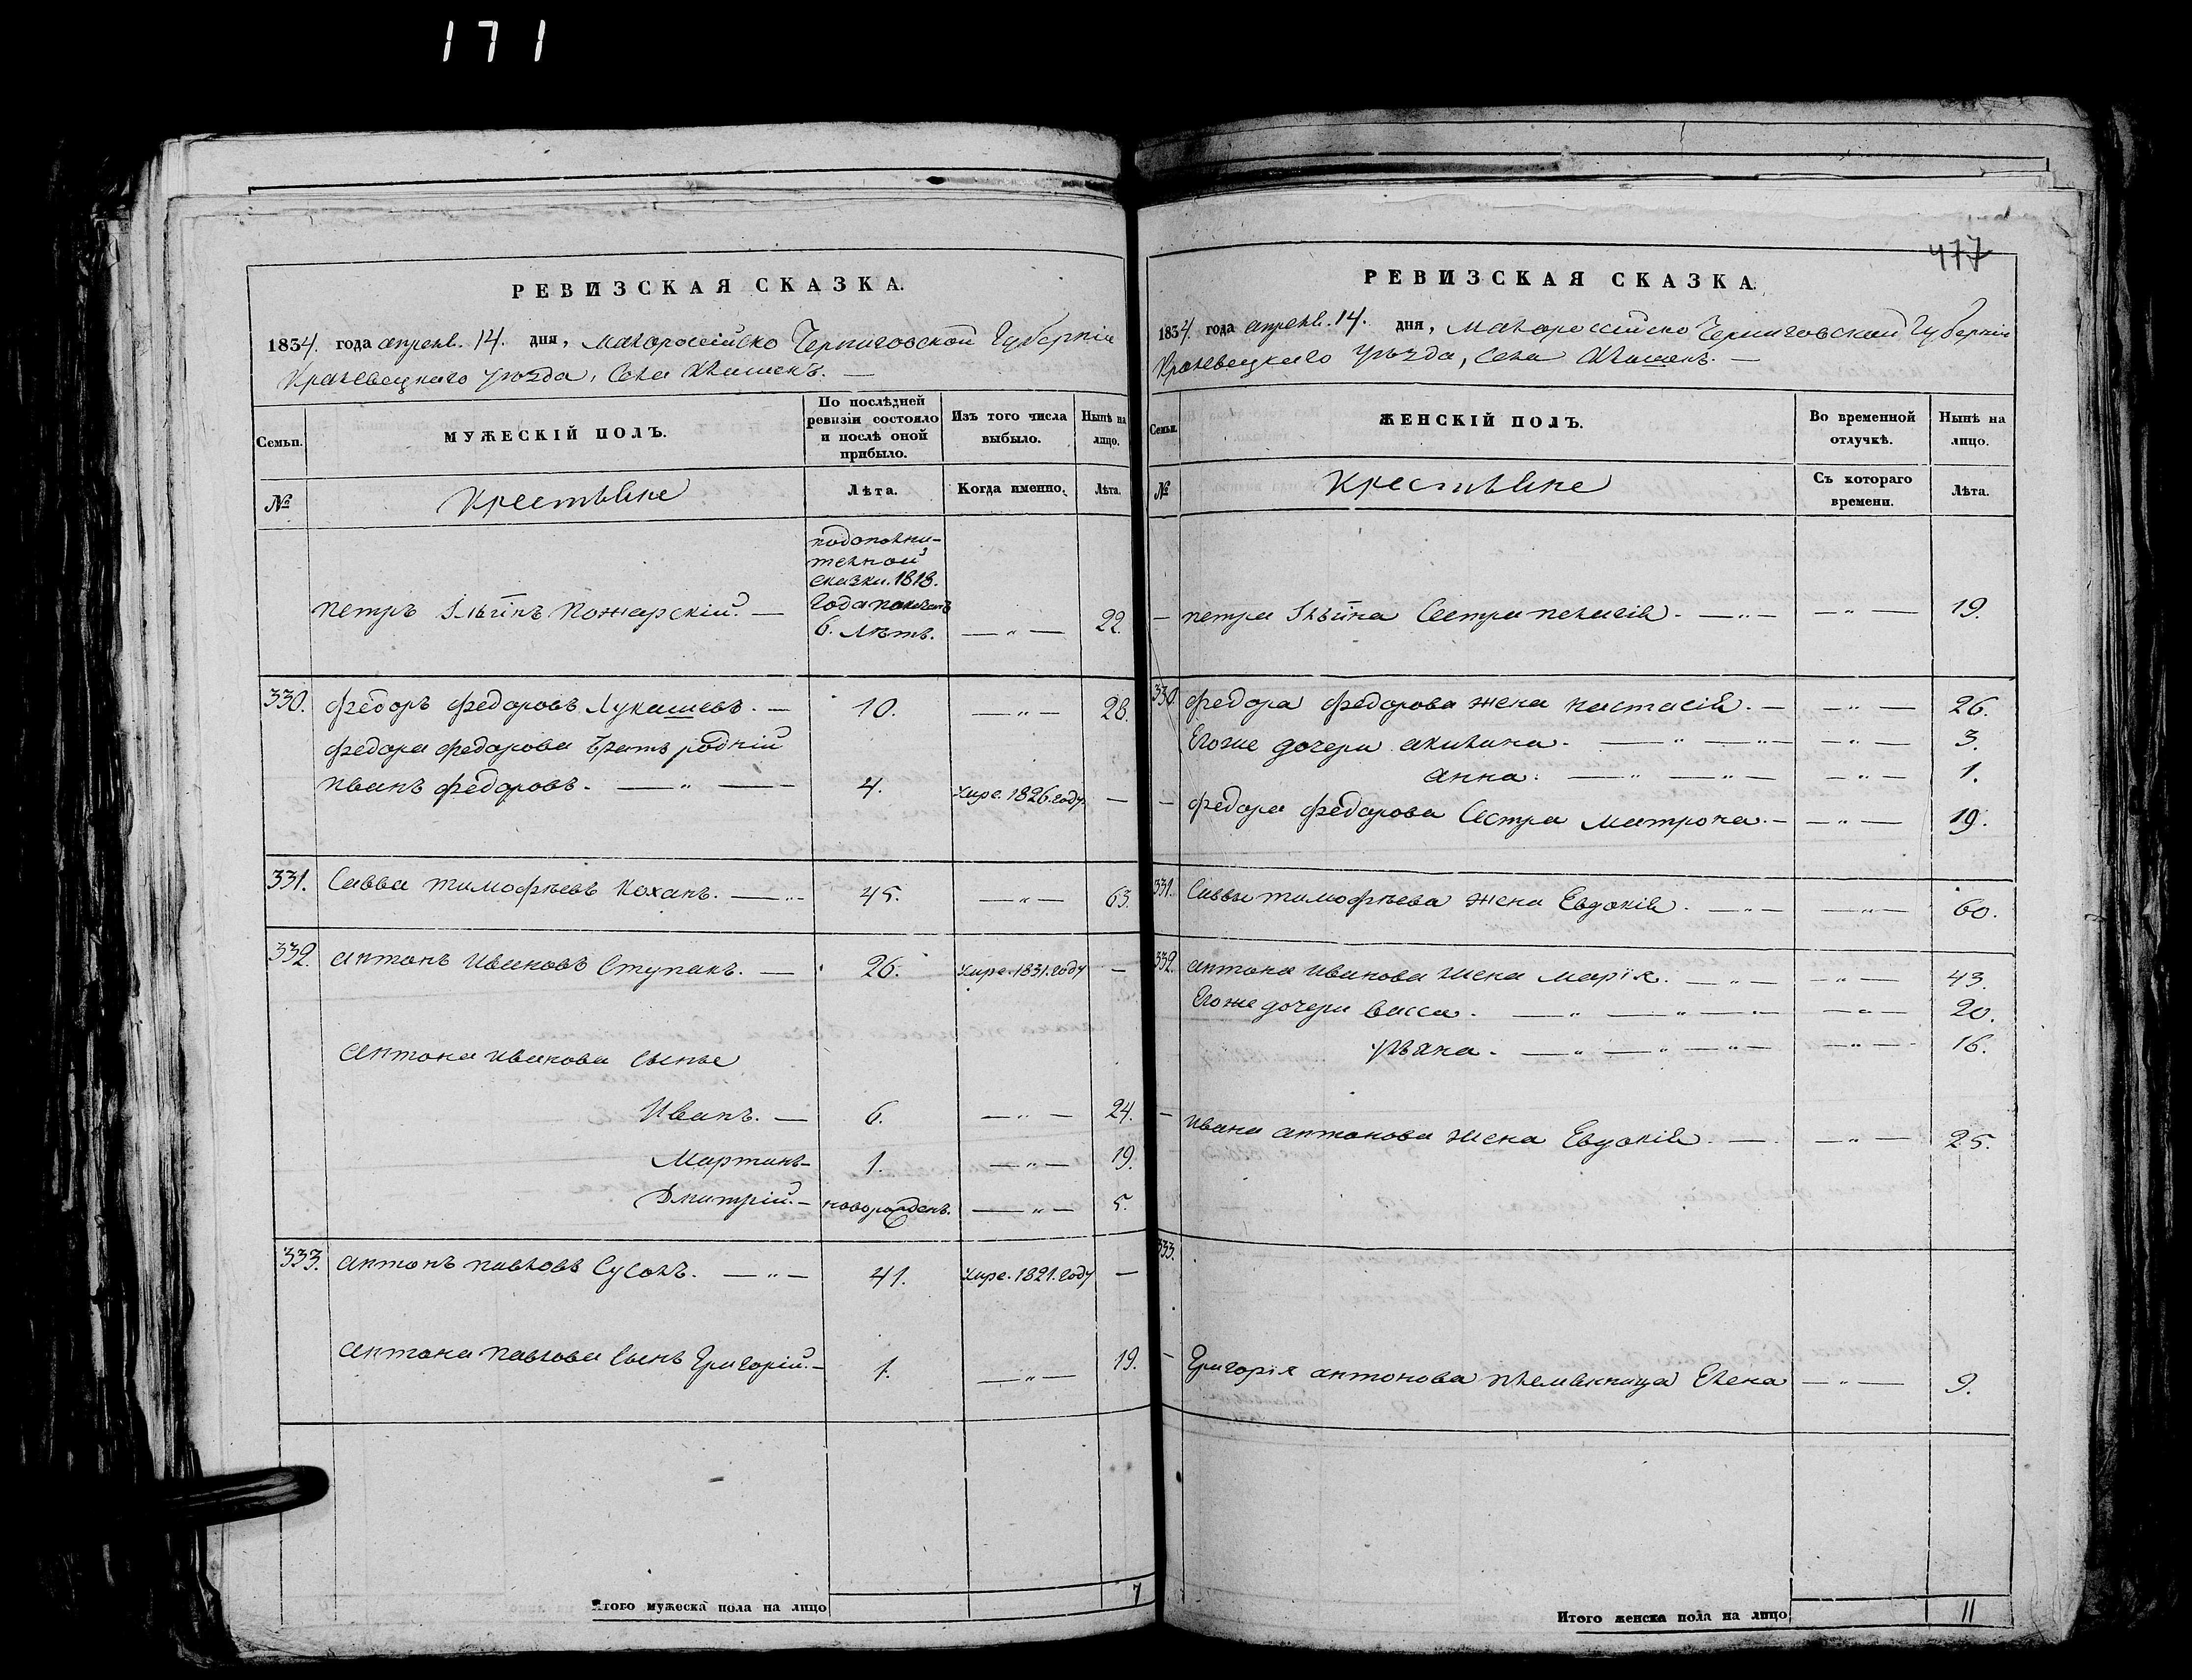 171
РЕВИЗСКАЯ СКАЗКА.
1834. года апрель. 14. дня, Малоросійско Черниговской Губерніи
Кролевецкаго уѣзда, Села Клишекъ. —
Семьи.
МУЖЕСКІЙ ПОЛЪ.
По послѣдней ревизіи состояло и послѣ оной прибыло.
Изъ того числа выбыло.
Нынѣ на лицо.
№
Крестьяне
Лѣта.
Когда именно.
Лѣта.
подополни-
тельной
сказки. 1818.
года показанъ
Петръ Ильинъ Пожарскій. — 6. лѣтъ. — " — 22.
330. Федоръ Федоровъ Лукашевъ. — 10. — " — 28.
Федора Федорова братъ родній
Иванъ Федоровъ. — " — 4. умре. 1826. году —
331. Савва Тимофѣевъ Коханъ. — " — 45. — " — 63.
332. Антонъ Ивановъ Ступакъ. — 26. умре. 1831. году —
Антона Иванова Сынъе
Иванъ. — 6. — " — 24.
Мартинъ — 1. — " — 19.
Дмитрій. — новорожденъ. — " — 5.
333. Антонъ Павловъ Сусолъ. — " — 41. умре. 1821. году —
Антона Павлова Сынъ Григорій. — 1. — " — 19.
Итого мужеска пола на лицо 7
477
РЕВИЗСКАЯ СКАЗКА.
1834. года апрель. 14. дня, Малоросійско Черниговской Губерніи
Кролевецкаго уѣзда, Села Клишекъ. —
Семьи.
ЖЕНСКІЙ ПОЛЪ.
Во временной отлучкѣ.
Нынѣ на лицо.
№
Крестьяне
Съ котораго времени.
Лѣта.
— Петра Ильина Сестра Пелагія. — " — — " — 19.
330. Федора Федорова жена Настасія. — — " — 26.
Егоже дочери Акилина. — " — " — — " — 3.
Анна. — " — " — — " — 1.
— Федора Федорова Сестра Матрона. — — " — 19.
331. Саввы Тимофѣева жена Евдокія. — " — — " — 60.
332. Антона Иванова жена Марія. — " — — " — 43.
Егоже дочери Васса. — " — " — — " — 20.
Уляна. — " — " — " — — " — 16.
— Ивана Антонова жена Евдокія. — — " — 25.
333.
— Григорія Антонова племянница Елена — " — 9.
Итого женска пола на лицо 11